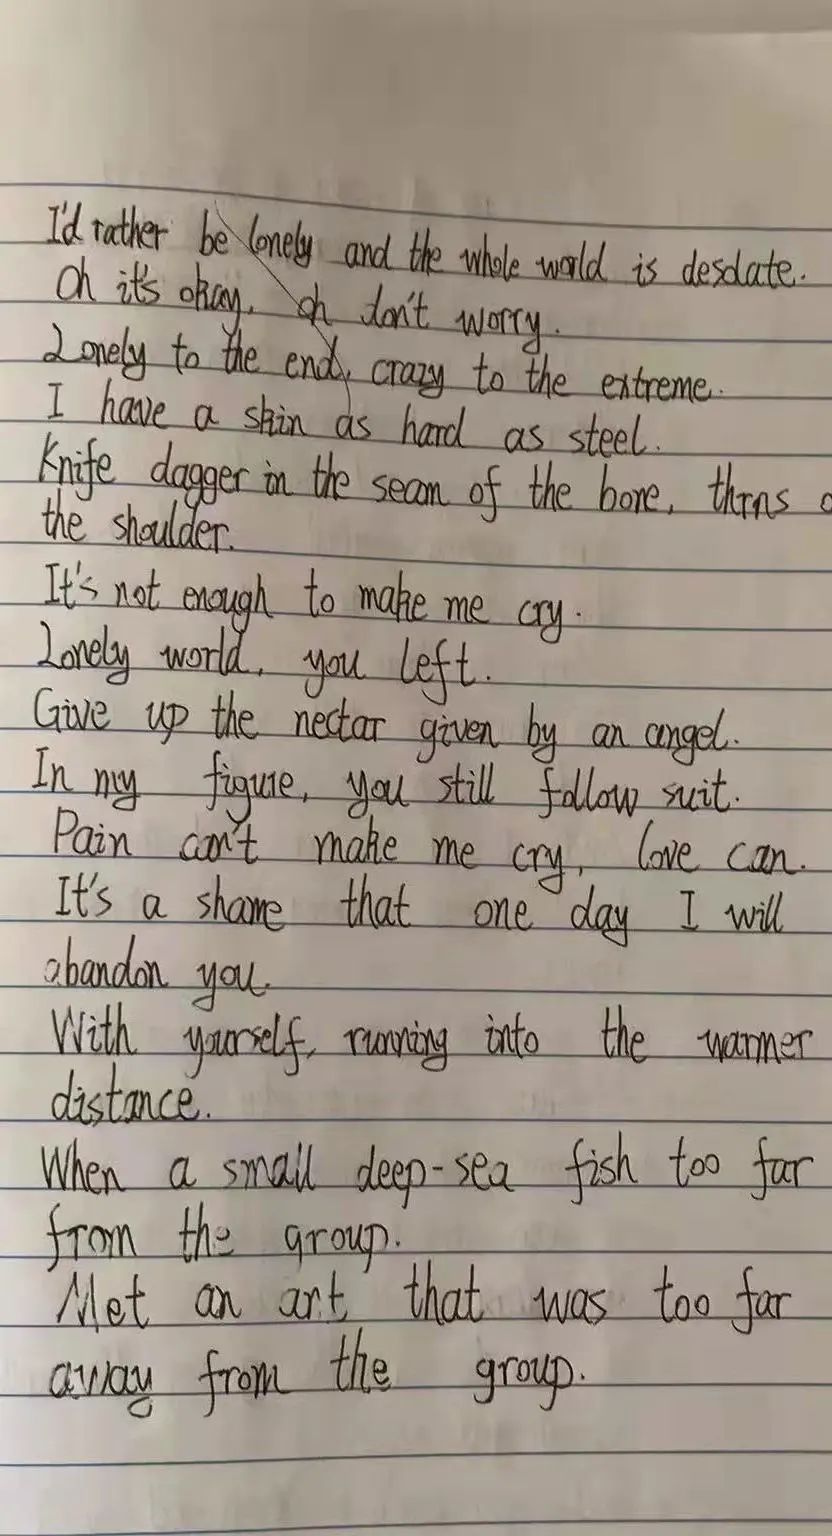 I'd rather be lonely and the whole world is desolate.
Oh it's okay, oh don't worry.
Lonely to the end, crazy to the extreme.
I have a skin as hard as steel.
Knife dagger in the seam of the bone, thrns
the shoulder.
It's not enough to make me cry.
Lonely world, you left.
Give up the nectar given by an angel.
In my figure, you still follow suit.
Pain can't make me cry, love can.
It's a shame that one day I will
abandon you.
With yourself, running into the warmer
distance.
When a small deep-sea fish too far
from the group.
Met an art that was too far
away from the group.